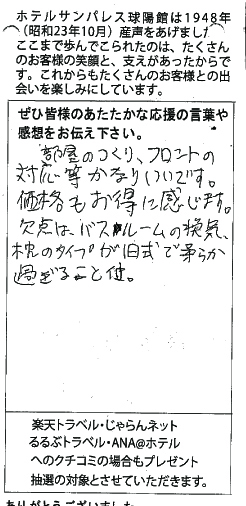 ホテルサンパレス球陽館は1948年
(昭和23年10月)産声をあげました
ここまで歩んでこられたのは、たくさん
のお客様の笑顔と、支えがあったからで
す。これからもたくさんのお客様との出
会いを楽しみにしています。
ぜひ皆様のあたたかな応援の言葉や
感想をお伝え下さい。
部屋のつくり、フロントの
対応等かなりいいです。
価格もお得に感じます。
欠点は、バスルームの換気、
枕のタイプが旧式で柔らか
過ぎること他。
楽天トラベル・じゃらんネット
るるぶトラベル・ANA@ホテル
へのクチコミの場合もプレゼント
抽選の対象とさせていただきます。
ありがとうございました